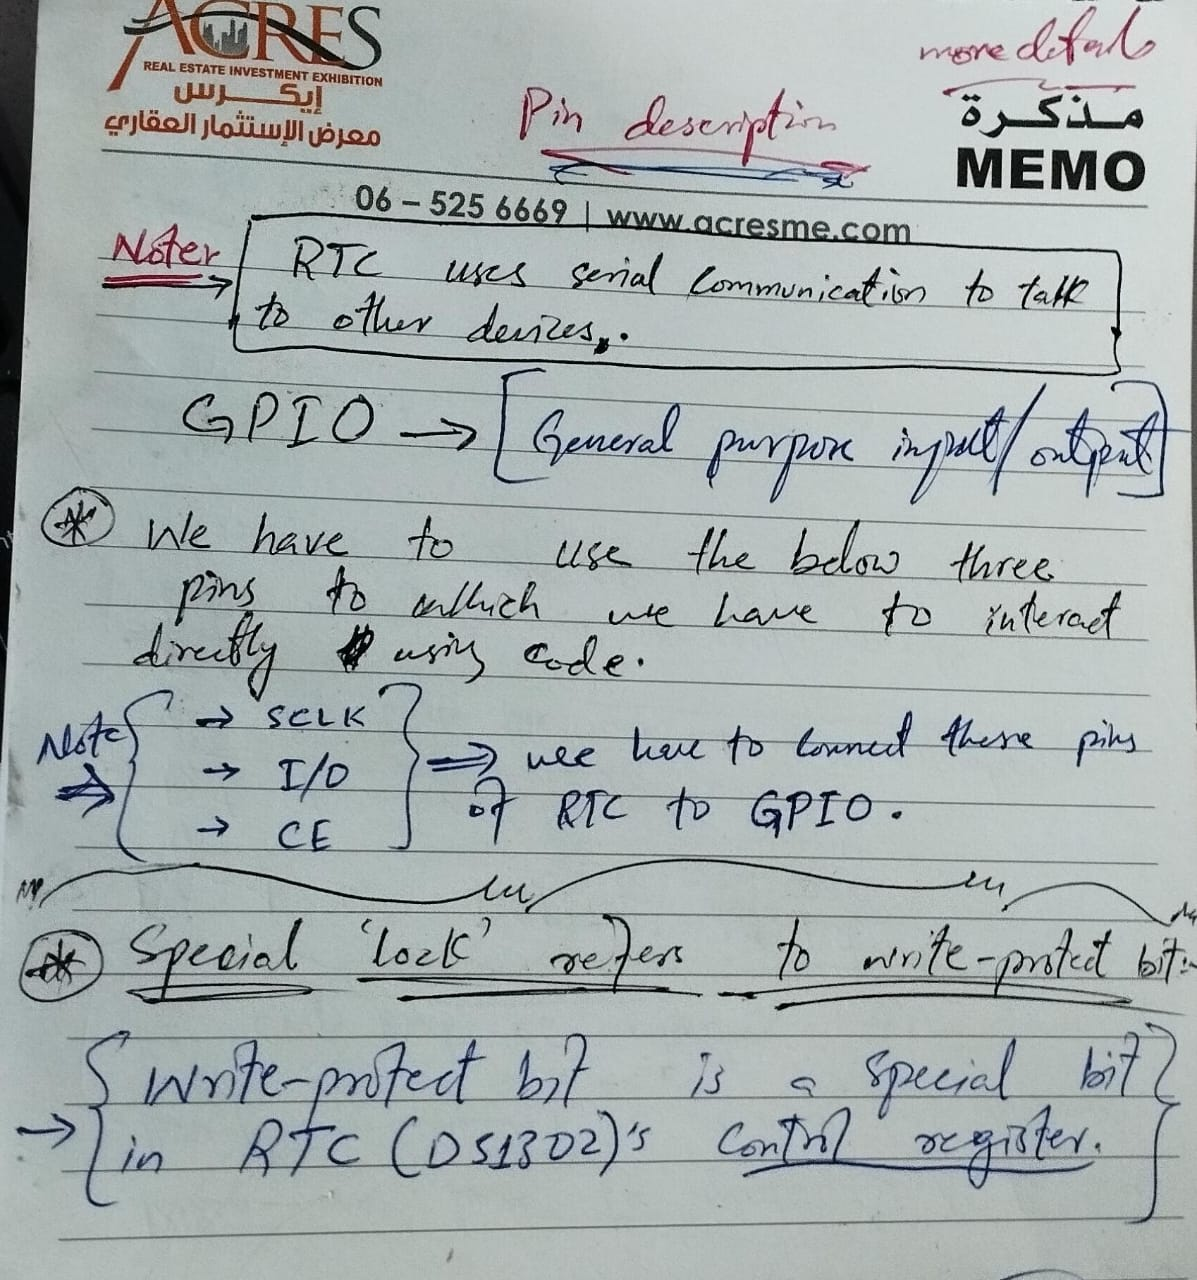 ACRES
REAL ESTATE INVESTMENT EXHIBITION
إيكرس
معرض الإستثمار العقاري
more details
مذكرة
MEMO
Pin description
06 – 525 6669 | www.acresme.com
Note
RTC uses serial communication to talk
to other devices.
GPIO → [General purpose input/output]
* We have to use the below three
pins to which we have to interact
directly using code.
Note
→ SCLK
→ I/O
→ CE
⇒ we have to connect these pins
of RTC to GPIO.
* Special 'lock' refers to write-protect bit:-
→ { Write-protect bit is a special bit
in RTC (DS1302)'s control register. }